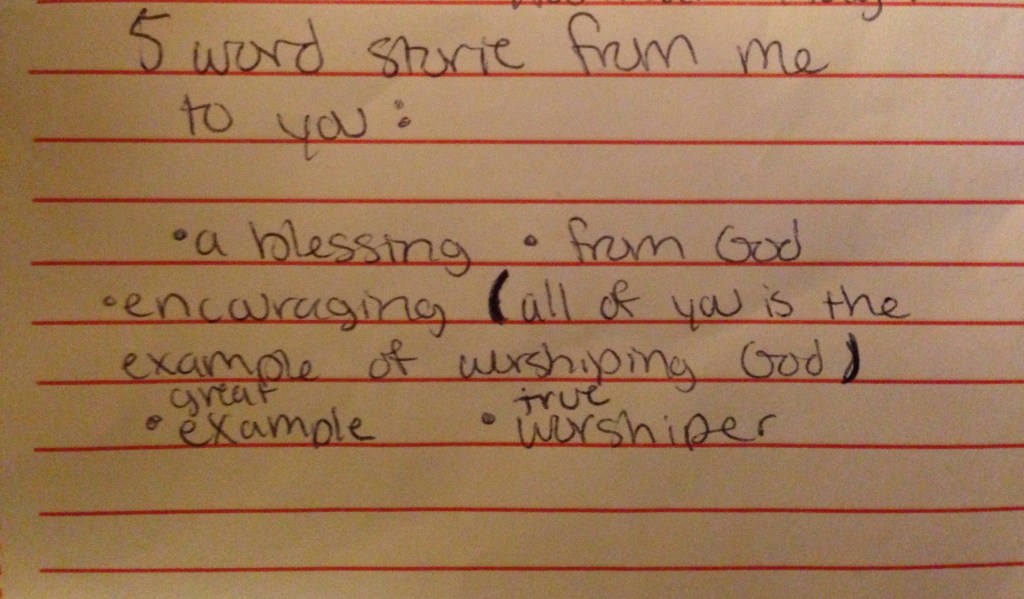 5 word storie from me
to you:
• a blessing • from God
• encouraging (all of you is the
example of worshiping God)
great true
• example • worshiper